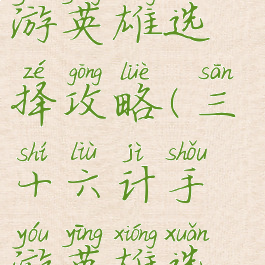 游英雄选
zé gōng lüè sān
择攻略(三
shí liù jì shǒu
十六计手
yóu yīng xióng xuǎn
游英雄选